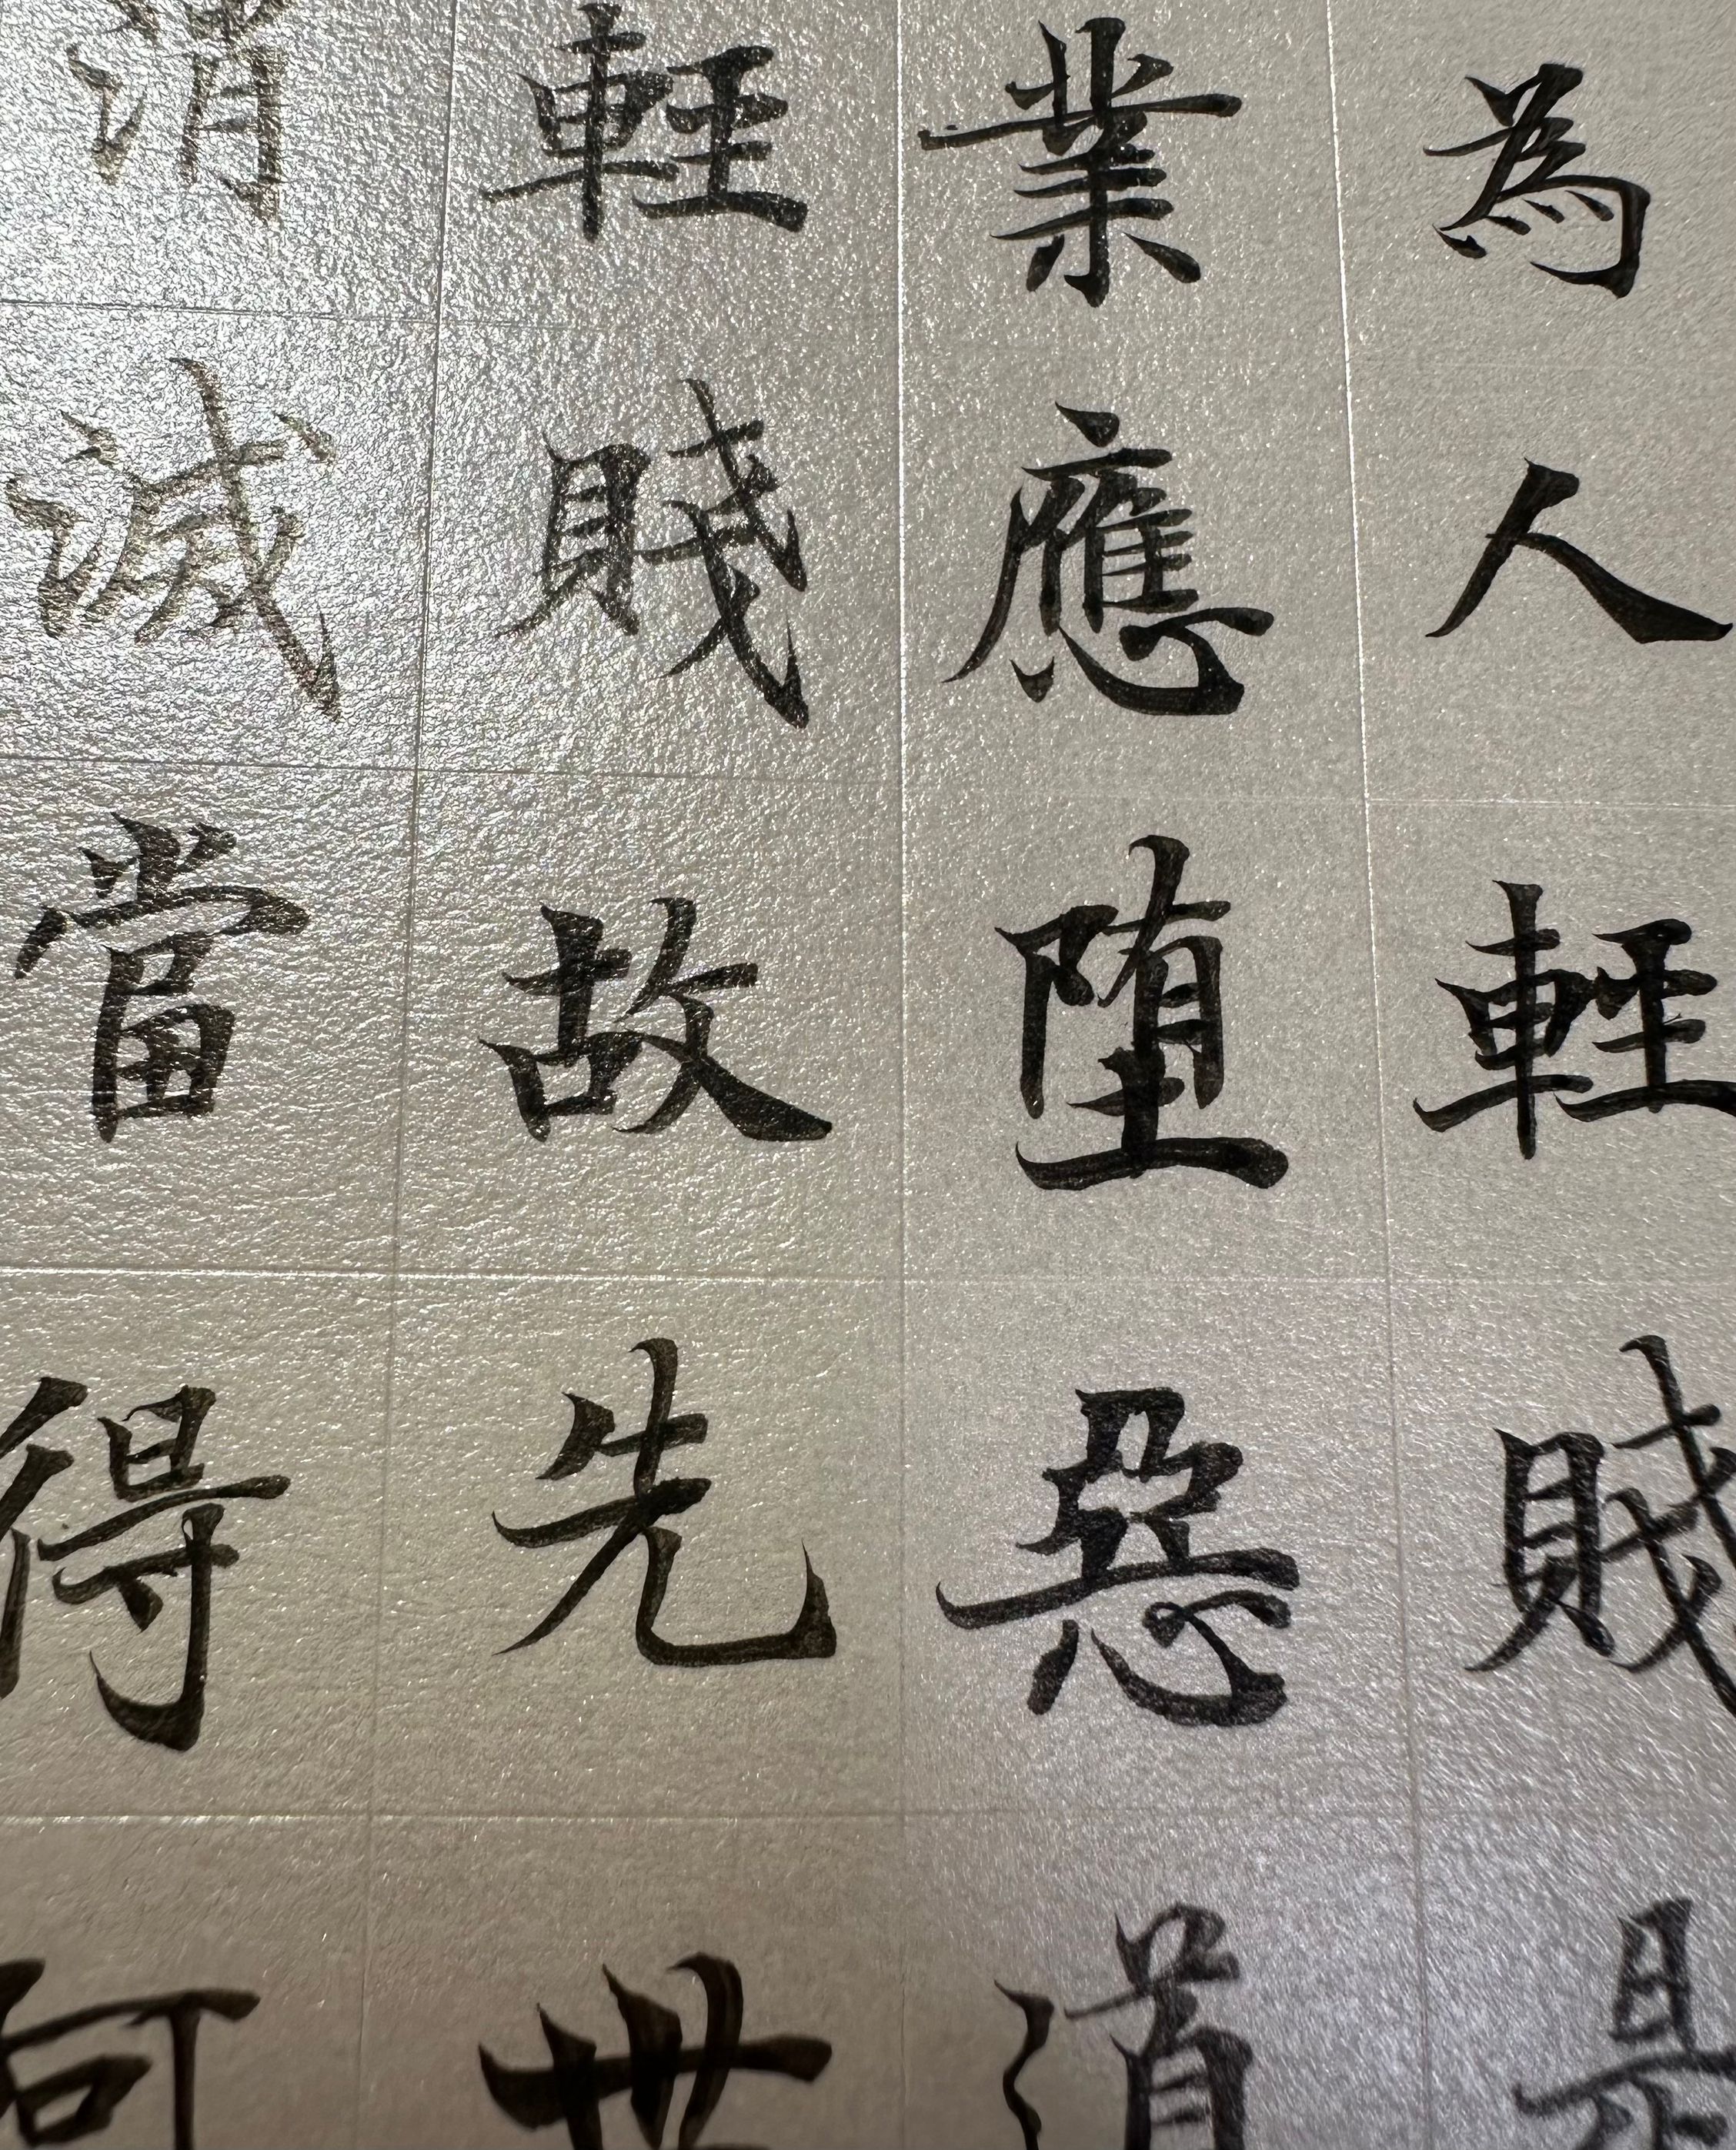 為人輕賤是
業應堕惡道
輕賤故先世
消滅當得阿